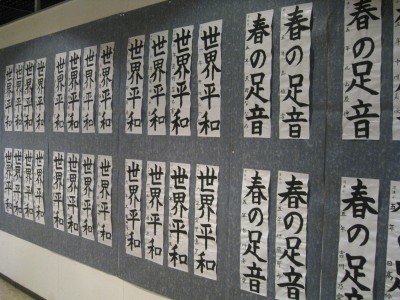 世界平和
世界平和
世界平和
世界平和
世界平和
世界平和
世界平和
世界平和
世界平和
世界平和
世界平和
世界平和
春の足音
春の足音
春の足音
世界平和
世界平和
世界平和
世界平和
世界平和
世界平和
世界平和
世界平和
世界平和
世界平和
世界平和
世界平和
春の足音
春の足音
春の足音